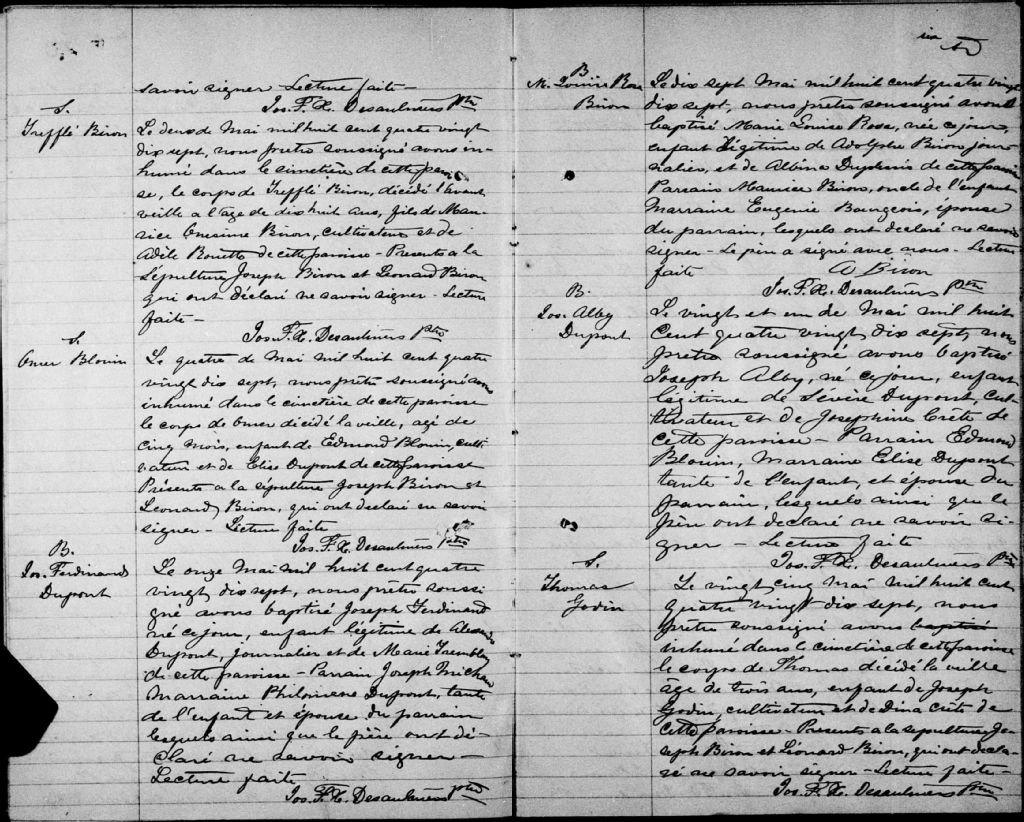 savoir signer – Lecture faite –
Jos. F. X. Desaulniers ptre
S.
Trefflé Biron
Le deux de Mai mil huit cent quatre vingt
dix sept, nous prêtre soussigné avons in-
humé dans le cimetière de cette parois-
se, le corps de Trefflé Biron, décédé l'avant
veille a l'age de dix huit ans, fils de Mau-
rice Onésime Biron, cultivateur et de
Adèle Rouette de cette paroisse – Présents a la
Sépulture Joseph Biron et Leonard Biron
qui ont déclaré ne savoir signer – Lecture
faite –
Jos. F. X. Desaulniers ptre
S.
Omer Blouin
Le quatre de Mai mil huit cent quatre
vingt dix sept, nous prêtre soussigné avons
inhumé dans le cimetière de cette paroisse
le corps de Omer décédé la veille, agé de
cinq mois, enfant de Edmond Blouin, culti
vateur et de Elise Dupont de cette paroisse
Présents a la sépulture Joseph Biron et
Leonard Biron, qui ont declaré ne savoir
signer – Lecture faite
Jos. F. X. Desaulniers ptre
B.
Jos. Ferdinand
Dupont
Le onze Mai mil huit cent quatre
vingt dix sept, nous prêtre soussi
gné avons baptisé Joseph Ferdinand
né ce jour, enfant légitime de
Dupont, Journalier et de Marie Tremblay
de cette paroisse – Parrain Joseph
Marraine Philomène Dupont, tante
de l'enfant et épouse du parrain
lesquels ainsi que le père ont dé-
claré ne savoir signer –
Lecture faite
Jos. F. X. Desaulniers ptre
six
B
M. Louise Rose
Biron
Le dix sept Mai mil huit cent quatre vingt
dix sept, nous prêtre soussigné avons
baptisé Marie Louise Rose, née ce jour,
enfant légitime de Adolphe Biron jour-
nalier, et de Albina Duplessis de cette paroisse
Parrain Maurice Biron, oncle de l'enfant
Marraine Eugenie Bourgeois, épouse
du parrain, lesquels ont déclaré ne savoir
signer – Le père a signé avec nous – Lecture
faite
A Biron
Jos. F. X. Desaulniers ptre
B.
Jos. Alby
Dupont
Le vingt et un de Mai mil huit
Cent quatre vingt dix sept, nous
prêtre soussigné avons baptisé
Joseph Alby, né ce jour, enfant
légitime de Sévère Dupont, cul
tivateur et de Josephine Crête de
cette paroisse – Parrain Edmond
Blouin, Marraine Elise Dupont
tante de l'enfant, et épouse du
parrain, lesquels ainsi que le
père ont declaré ne savoir si-
gner – Lecture faite
Jos. F. X. Desaulniers ptre
S.
Thomas
Godin
Le vingt cinq Mai mil huit cent
quatre vingt dix sept, nous
prêtre soussigné avons baptisé
inhumé dans le cimetière de cette paroisse
le corps de Thomas décédé la veille
âge de trois ans, enfant de Joseph
Godin cultivateur et de Dina Crête de
cette paroisse – Présents a la sepulture Jo-
seph Biron et Léonard Biron, qui ont décla-
ré ne savoir signer – Lecture faite –
Jos. F. X. Desaulniers ptre